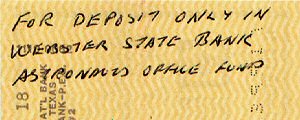 FOR DEPOSIT ONLY IN
WEBSTER STATE BANK
ASTRONAUTS OFFICE FUND
18
AT'L BANK
TEXAS
BANK-P.E.